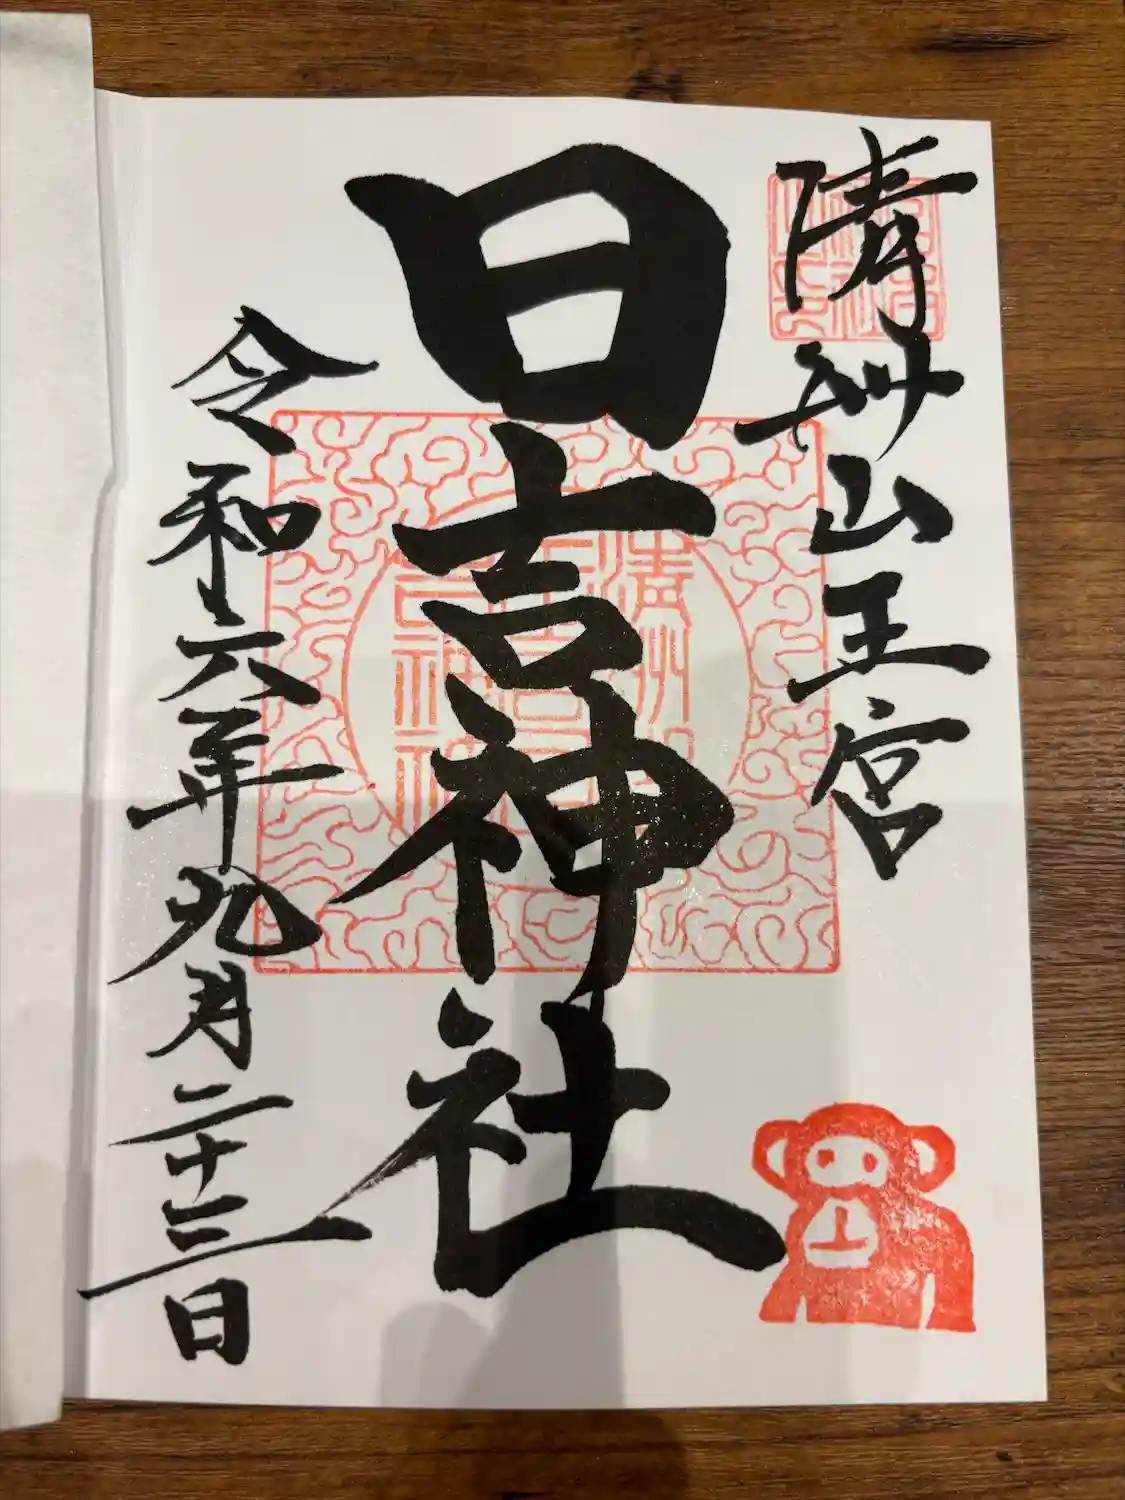 清洲山王宮
日吉神社
令和六年九月二十三日